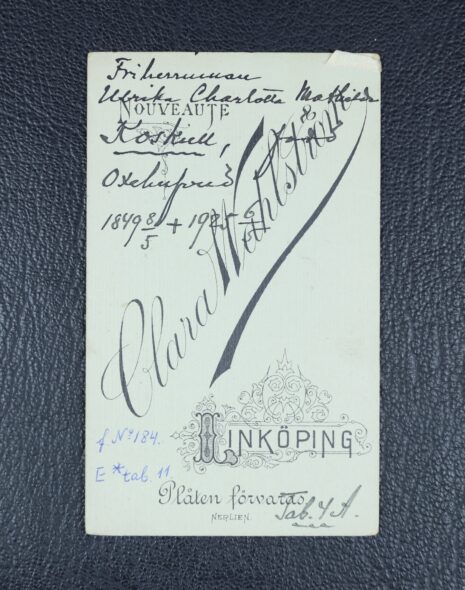 Friherrinnan
Ulrika Charlotta Mathilda
NOUVEAUTÉ
Koskull,
Oxehufvud
1849 8/5 + 1925
Clara Wahlström
LINKÖPING
f Nº 184.
E * tab. 11.
Plåten förvaras
NERLIEN.
Tab. 4 A.